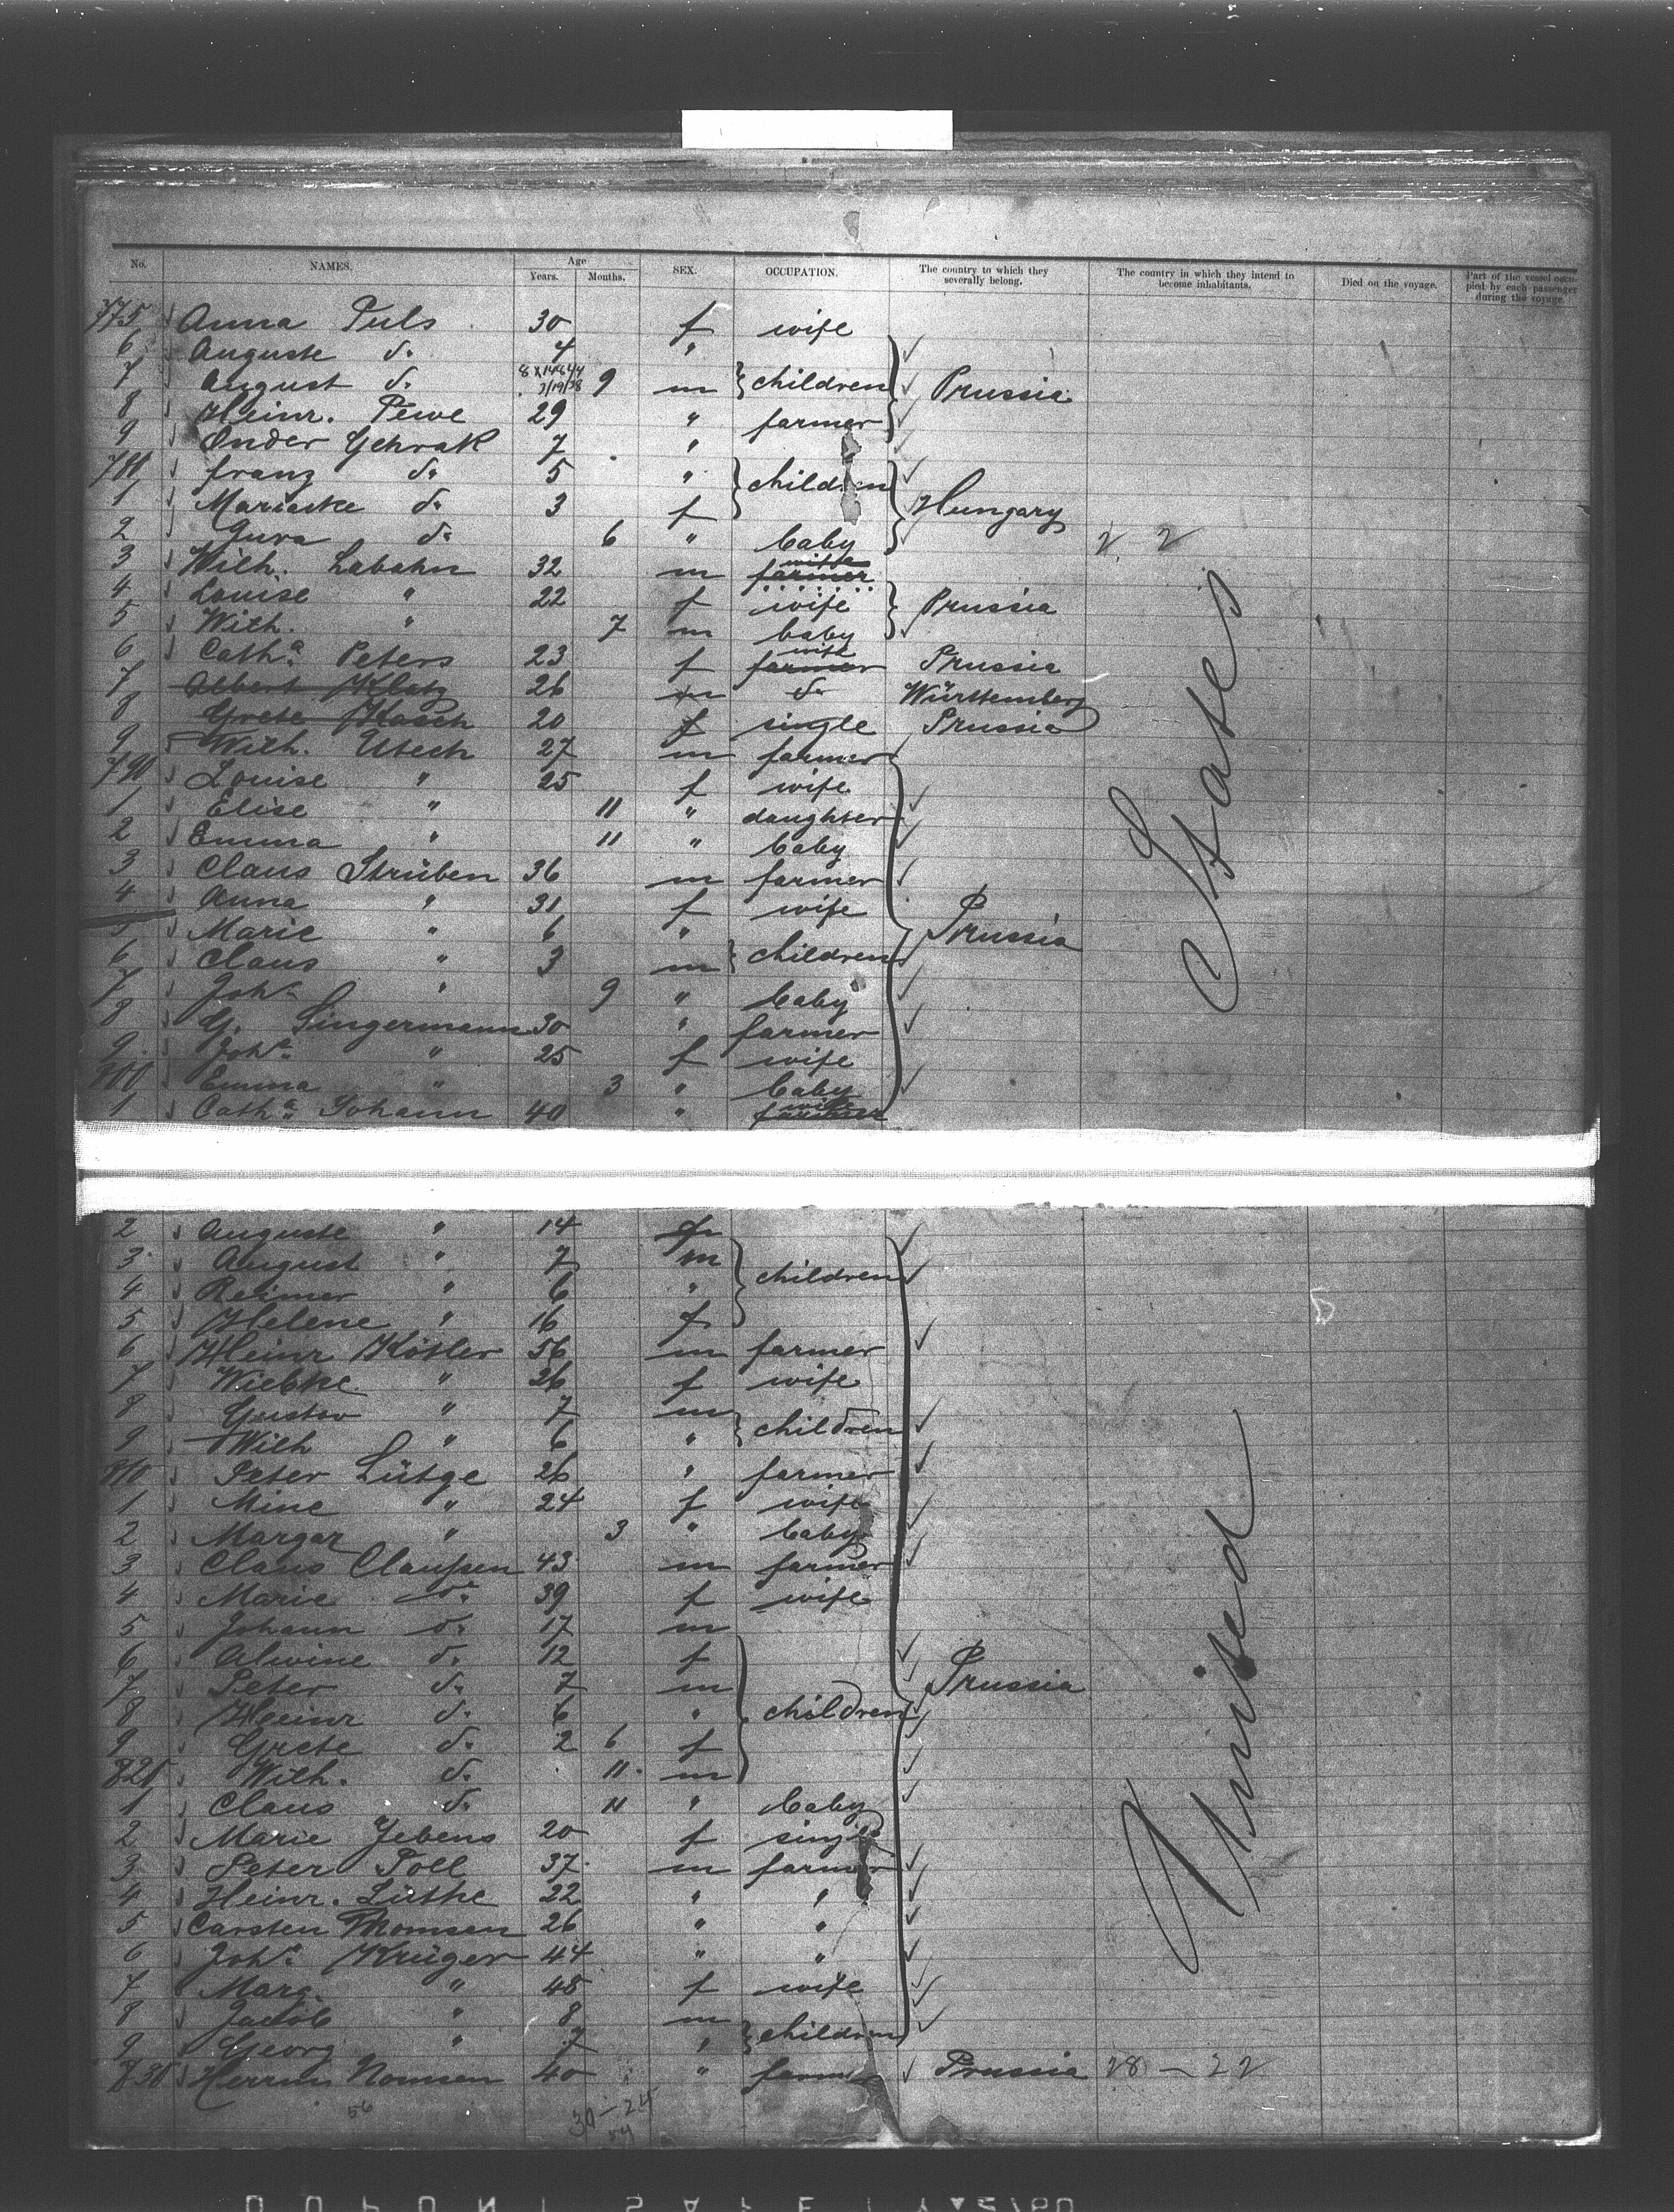 No. NAMES. Age Years. Months. SEX. OCCUPATION. The country to which they severally belong. The country in which they intend to become inhabitants. Died on the voyage. Part of the vessel occupied by each passenger during the voyage.
775 Anna Puls 30 f wife
6 Auguste do 4 "
7 August do 9 m children Prussia
8 Heinr. Pewe 29 " farmer
9 Onder Gehrak 7 "
780 Franz do 5 " children
1 Mariaske do 3 f Hungary
2 Jura do 6 " baby 2 2
3 Wilh. Labahn 32 m farmer
4 Louise " 22 f wife Prussia
5 Wilh. " 7 m baby
6 Catha. Peters 23 f farmer wife Prussia
7 Albert Klotz 26 m do Württemberg
8 Grete Kasch 20 f single Prussia
9 Wilh. Utech 27 m farmer
790 Louise " 25 f wife
1 Elise " 11 " daughter
2 Emma " 11 " baby
3 Claus Strüben 36 m farmer
4 Anna " 31 f wife
5 Marie " 6 " Prussia
6 Claus " 3 m children
7 Joh. " 9 " baby
8 G. Singermann 30 " farmer
9 Joha. " 25 f wife
800 Emma " 3 " baby
1 Catha. Johann 40 " wife
2 Auguste " 14 f
3 August " 7 m children
4 Reimer " 6 "
5 Helene " 16 f
6 Heinr Köster 56 m farmer
7 Wiebke " 26 f wife
8 Gustav " 7 m children
9 Wilh " 6 "
810 Peter Lütge 26 " farmer
1 Mine " 24 f wife
2 Margar " 3 " baby
3 Claus Claussen 43 m farmer
4 Marie do 39 f wife
5 Johann do 17 m
6 Alwine do 12 f
7 Peter do 7 m Prussia
8 Heinr do 6 " children
9 Grete do 2 6 f
820 Wilh. do 11 m
1 Claus do 11 " baby
2 Marie Jebens 20 f single
3 Peter Poll 37 m farmer
4 Heinr. Lüthe 22 " "
5 Carsten Thomsen 26 " "
6 Joh. Krüger 44 " "
7 Marg. " 48 f wife
8 Jacob " 8 m children
9 Georg " 7 "
830 Herrm Nomsen 40 " farmer Prussia 28 - 22
56 30 - 24
54
United States